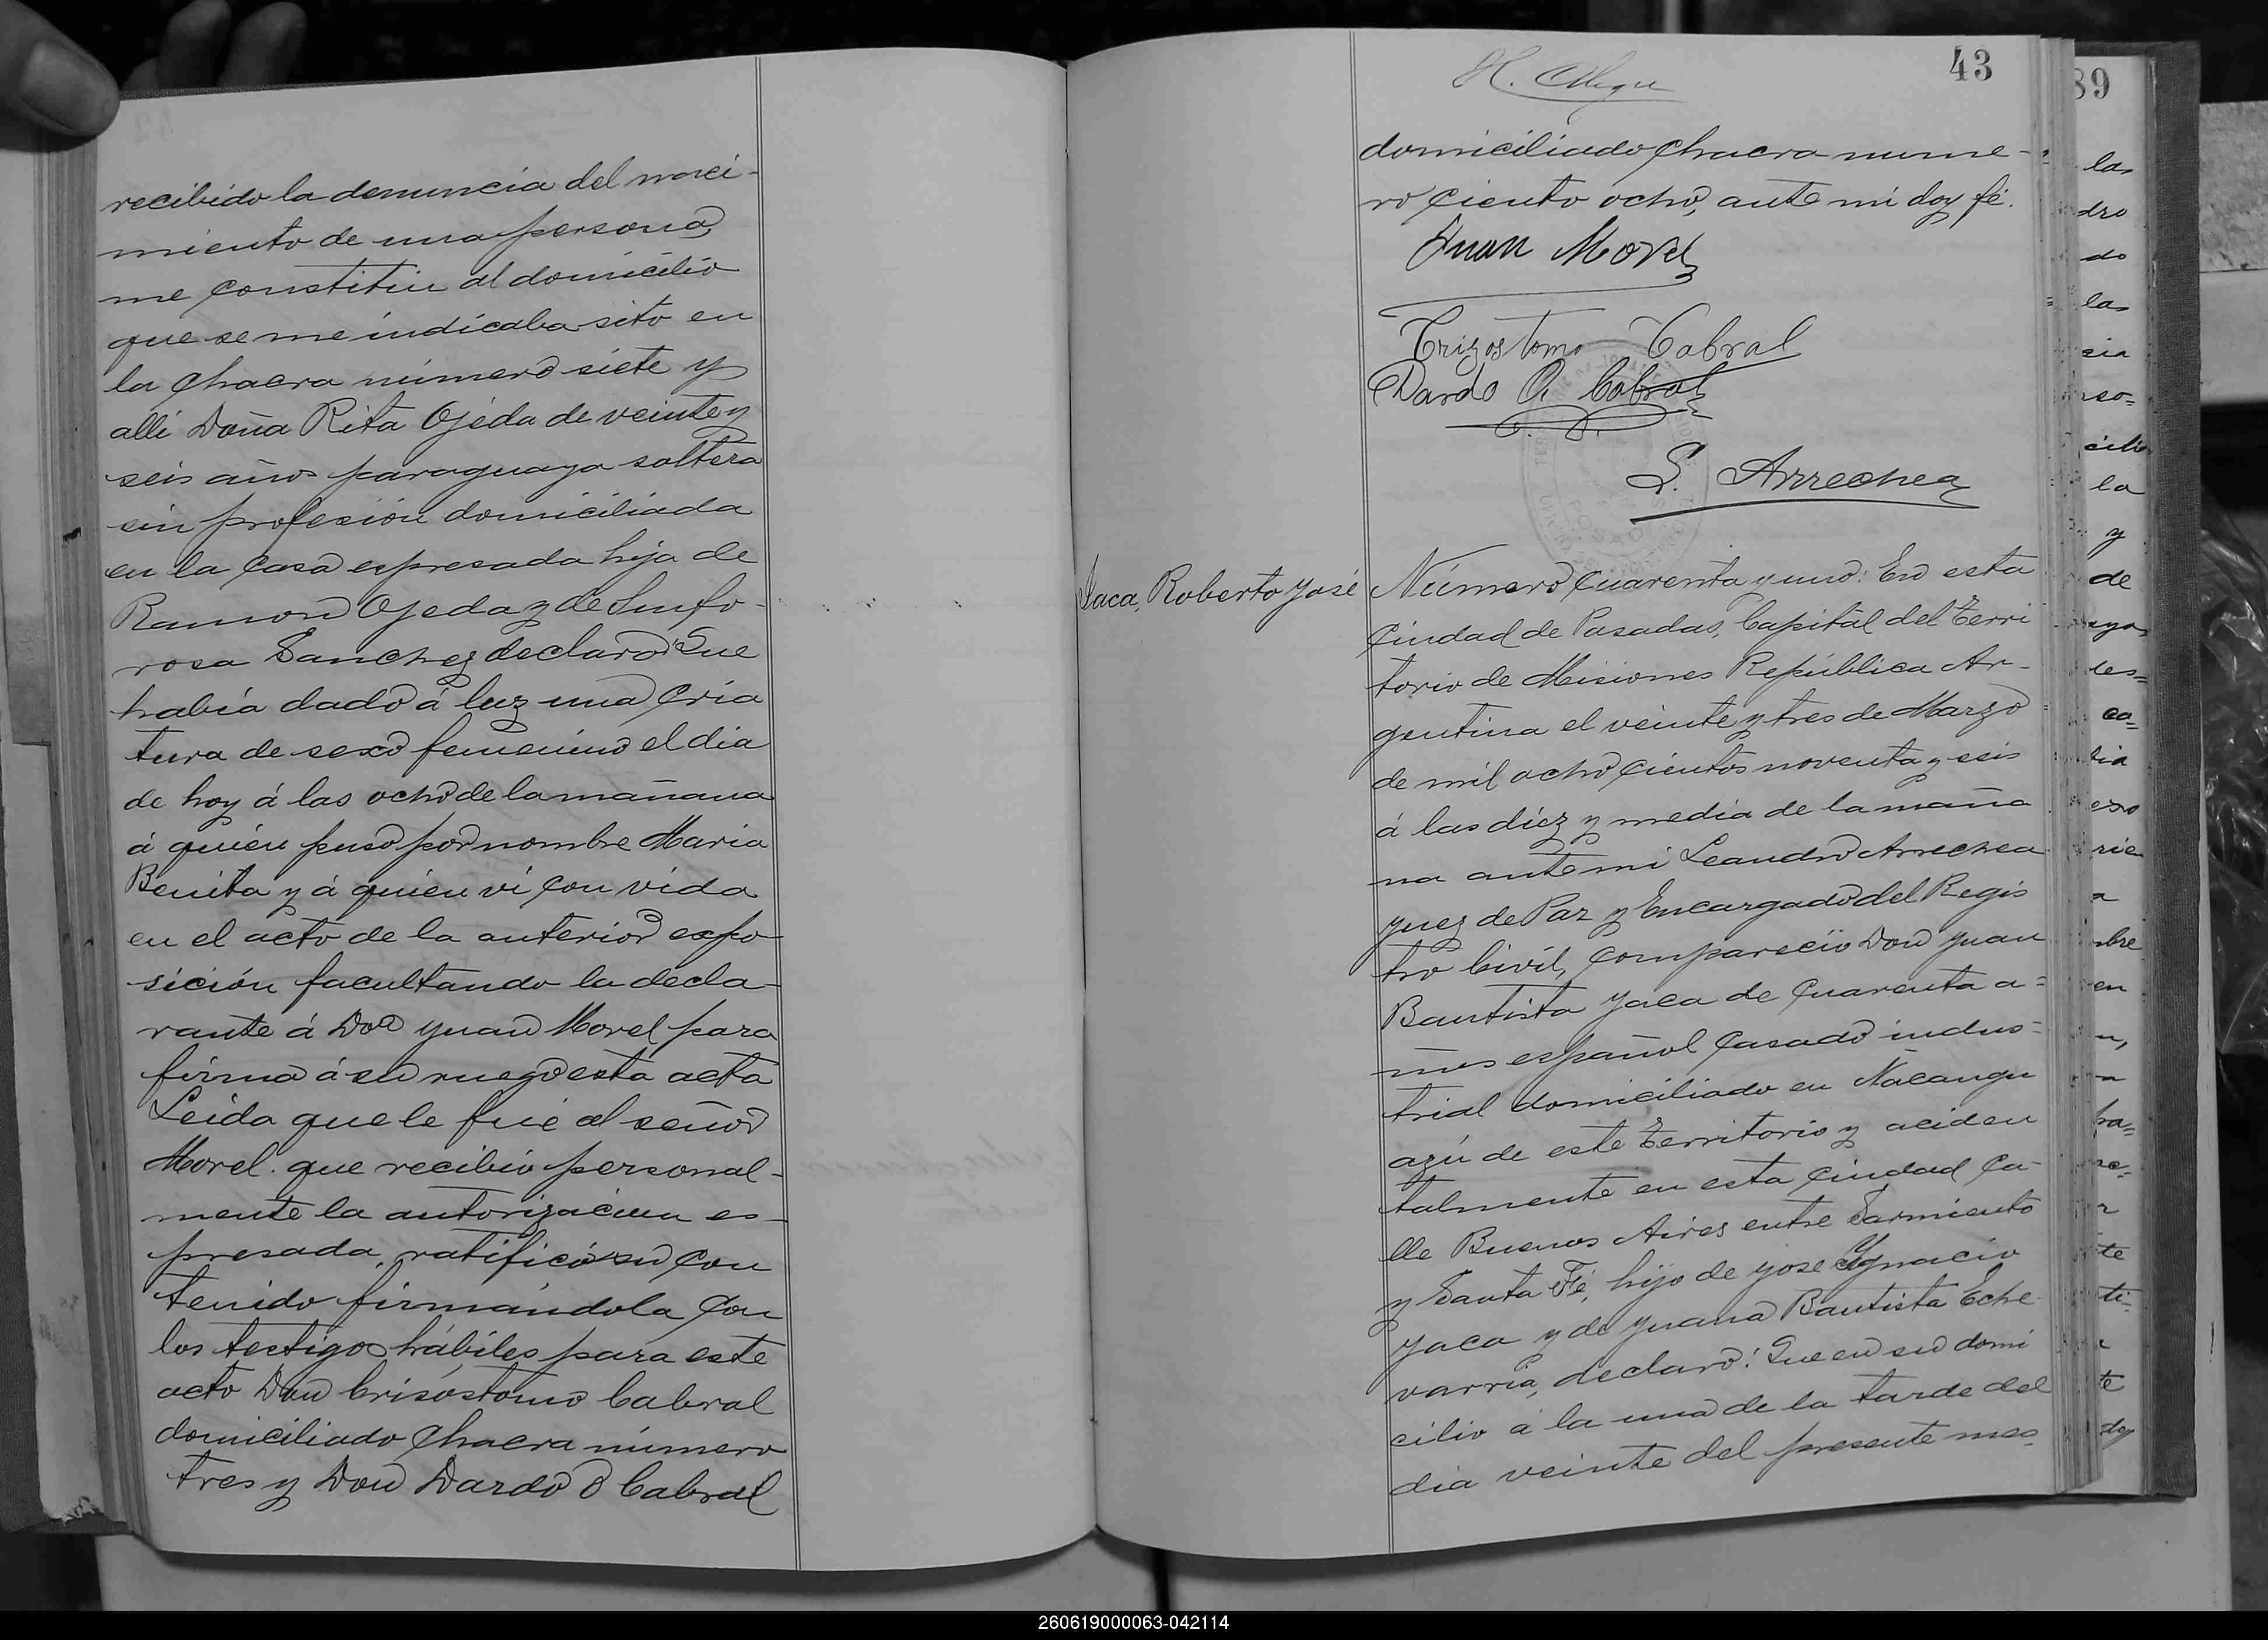 recibido la denuncia del naci-
miento de una persona,
me constitui al domicilio
que se me indicaba sito en
la chacra número siete y
allí Doña Rita Ojeda de veinte y
seis años paraguaya soltera
sin profesión domiciliada
en la casa espresada hija de
Ramon Ojeda y de Sinfo-
rosa Sanchez declaró: Que
había dado á luz una cria
tura de sexo femenino el dia
de hoy á las ocho de la mañana
á quien puso por nombre Maria
Benita y á quien ví con vida
en el acto de la anterior expo-
sición facultando la decla-
rante á Don Juan Morel para
firma á su ruego esta acta
Leida que le fué al señor
Morel. que recibió personal-
mente la autorización es-
presada, ratificó su con
tenido firmándola con
los testigos hábiles para este
acto Don Crisóstomo Cabral
domiciliado chacra número
tres y Don Dardo O Cabral
43
domiciliado chacra nume-
ro ciento ocho, ante mí doy fé.
Juan Morel
Crizostomo Cabral
Dardo O. Cabral
L. Arrechea
POSADAS
Jaca, Roberto José
Número cuarenta y uno: En esta
Ciudad de Posadas, Capital del Terri
torio de Misiones República Ar-
gentina el veinte y tres de Marzo
de mil ocho cientos noventa y seis
á las diez y media de la maña
na ante mi Leandro Arrechea
Juez de Paz y Encargado del Regis
tro Civil, compareció Don Juan
Bautista Jaca de cuarenta a=
ños español casado indus=
trial domiciliado en Ñacangu
azú de este Territorio y aciden
talmente en esta Ciudad Ca-
lle Buenos Aires entre Sarmiento
y Santa Fé, hijo de José Ygnacio
Jaca y de Juana Bautista Eche
varria, declaró: Que en su domi
cilio á la una de la tarde del
dia veinte del presente mes
89
las
dro
do
las
cia
so=
cilio
la
y
de
ayos
des=
co=
dia
exo
a
mbre
en
te
ti=
te
doy
260619000063-042114